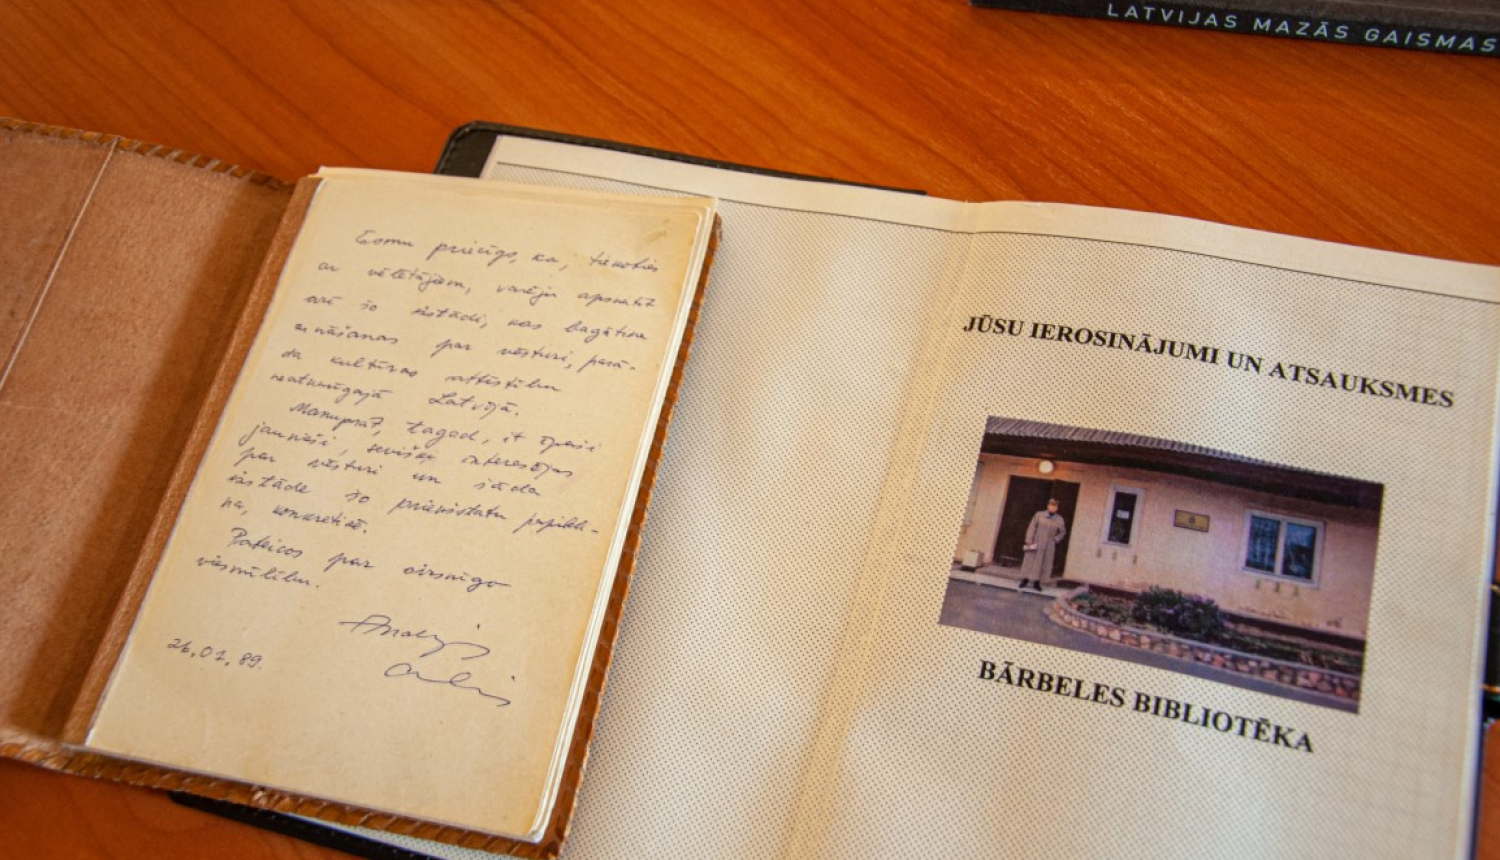 LATVIJAS MAZĀS GAISMAS
Esmu priecīgs, ka, tiekoties
ar vēlētājiem, varēju apskatīt
arī šo iestādi, kas bagātina
zināšanas par vēsturi, parā-
da kultūras attīstību
neatkarīgajā Latvijā.
Manuprāt, tagad, it īpaši
jaunieši, sevišķi interesējas
par vēsturi un šāda
iestāde šo priekšstatu papildi-
na, konkretizē.
Pateicos par sirsnīgo
viesmīlību.
26.01.89.
JŪSU IEROSINĀJUMI UN ATSAUKSMES
BĀRBELES BIBLIOTĒKA